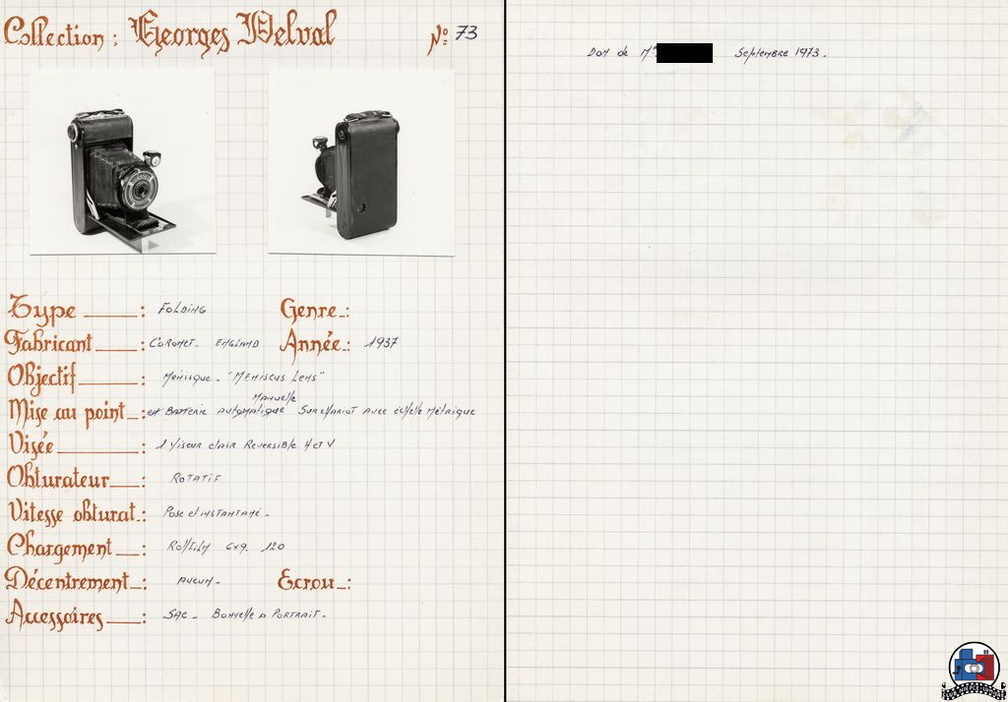 Collection : Georges Delval Nº 73
Type : FOLDING Genre :
Fabricant : CORONET - ENGLAND Année : 1937
Objectif : Ménisque - "MENISCUS LENS"
Manuelle
Mise au point : en BATTERIE AUTOMATIQUE SUR CHARIOT AVEC ÉCHELLE MÉTRIQUE
Visée : 1 VISEUR CLAIR REVERSIBLE H et V
Obturateur : ROTATIF
Vitesse obturat. : POSE et INSTANTANÉ -
Chargement : Rollfilm 6x9. 120
Décentrement : AUCUN - Ecrou :
Accessoires : SAC - BONNETTE A PORTRAIT -
DON de Mr SEPTEMBRE 1973.